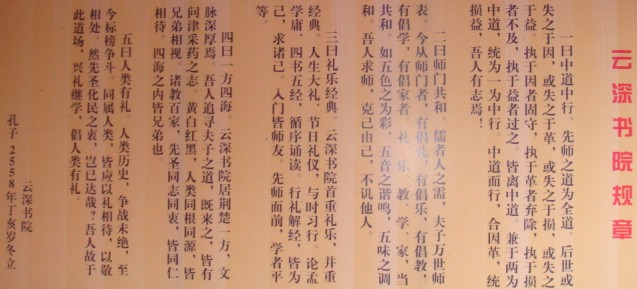 云深书院规章
一曰中道中行 先师之道为全道 后世或
失之于因，或失之于革，或失之于损，或失之
于益。执于因者固守，执于革者弃除，执于损
者不及，执于益者过之。皆离中道。兼于两为
中道，统为一为中行。中道而行，合因革，统
损益，吾人有志焉！
二曰师门共和。儒者人之需，夫子万世师
表。今从师门者，有倡礼，有倡乐，有倡教，
有倡学，有倡家者，礼、乐、教、学、家，当
共和。如五色之为彩，五音之谐鸣，五味之调
和。吾人求师，克己由己，不讥他人。
三曰礼乐经典。云深书院首重礼乐，并重
经典。人生大礼，节日礼仪，与时习行。论孟
学庸，四书五经，循序诵读。行礼解经，皆为
己，求诸己。入门皆师友。先师面前，学者平
等。
四曰一方四海。云深书院居荆楚一方，文
脉深厚焉。吾人追寻夫子之道，既来之，皆有
问津采药之志。黄白红黑，人类同根同源，皆
兄弟相视。诸教百家，先圣同志同衷，皆同仁
相待。四海之内皆兄弟也。
五曰人类有礼。人类历史，争战未绝，至
今标榜争斗。同属人类，皆应以礼相待，以敬
相处。然先圣化民之衷，岂已达哉？吾人故于
此道场，兴礼继学，倡人类有礼。
云深书院
孔子2558年丁亥岁冬立